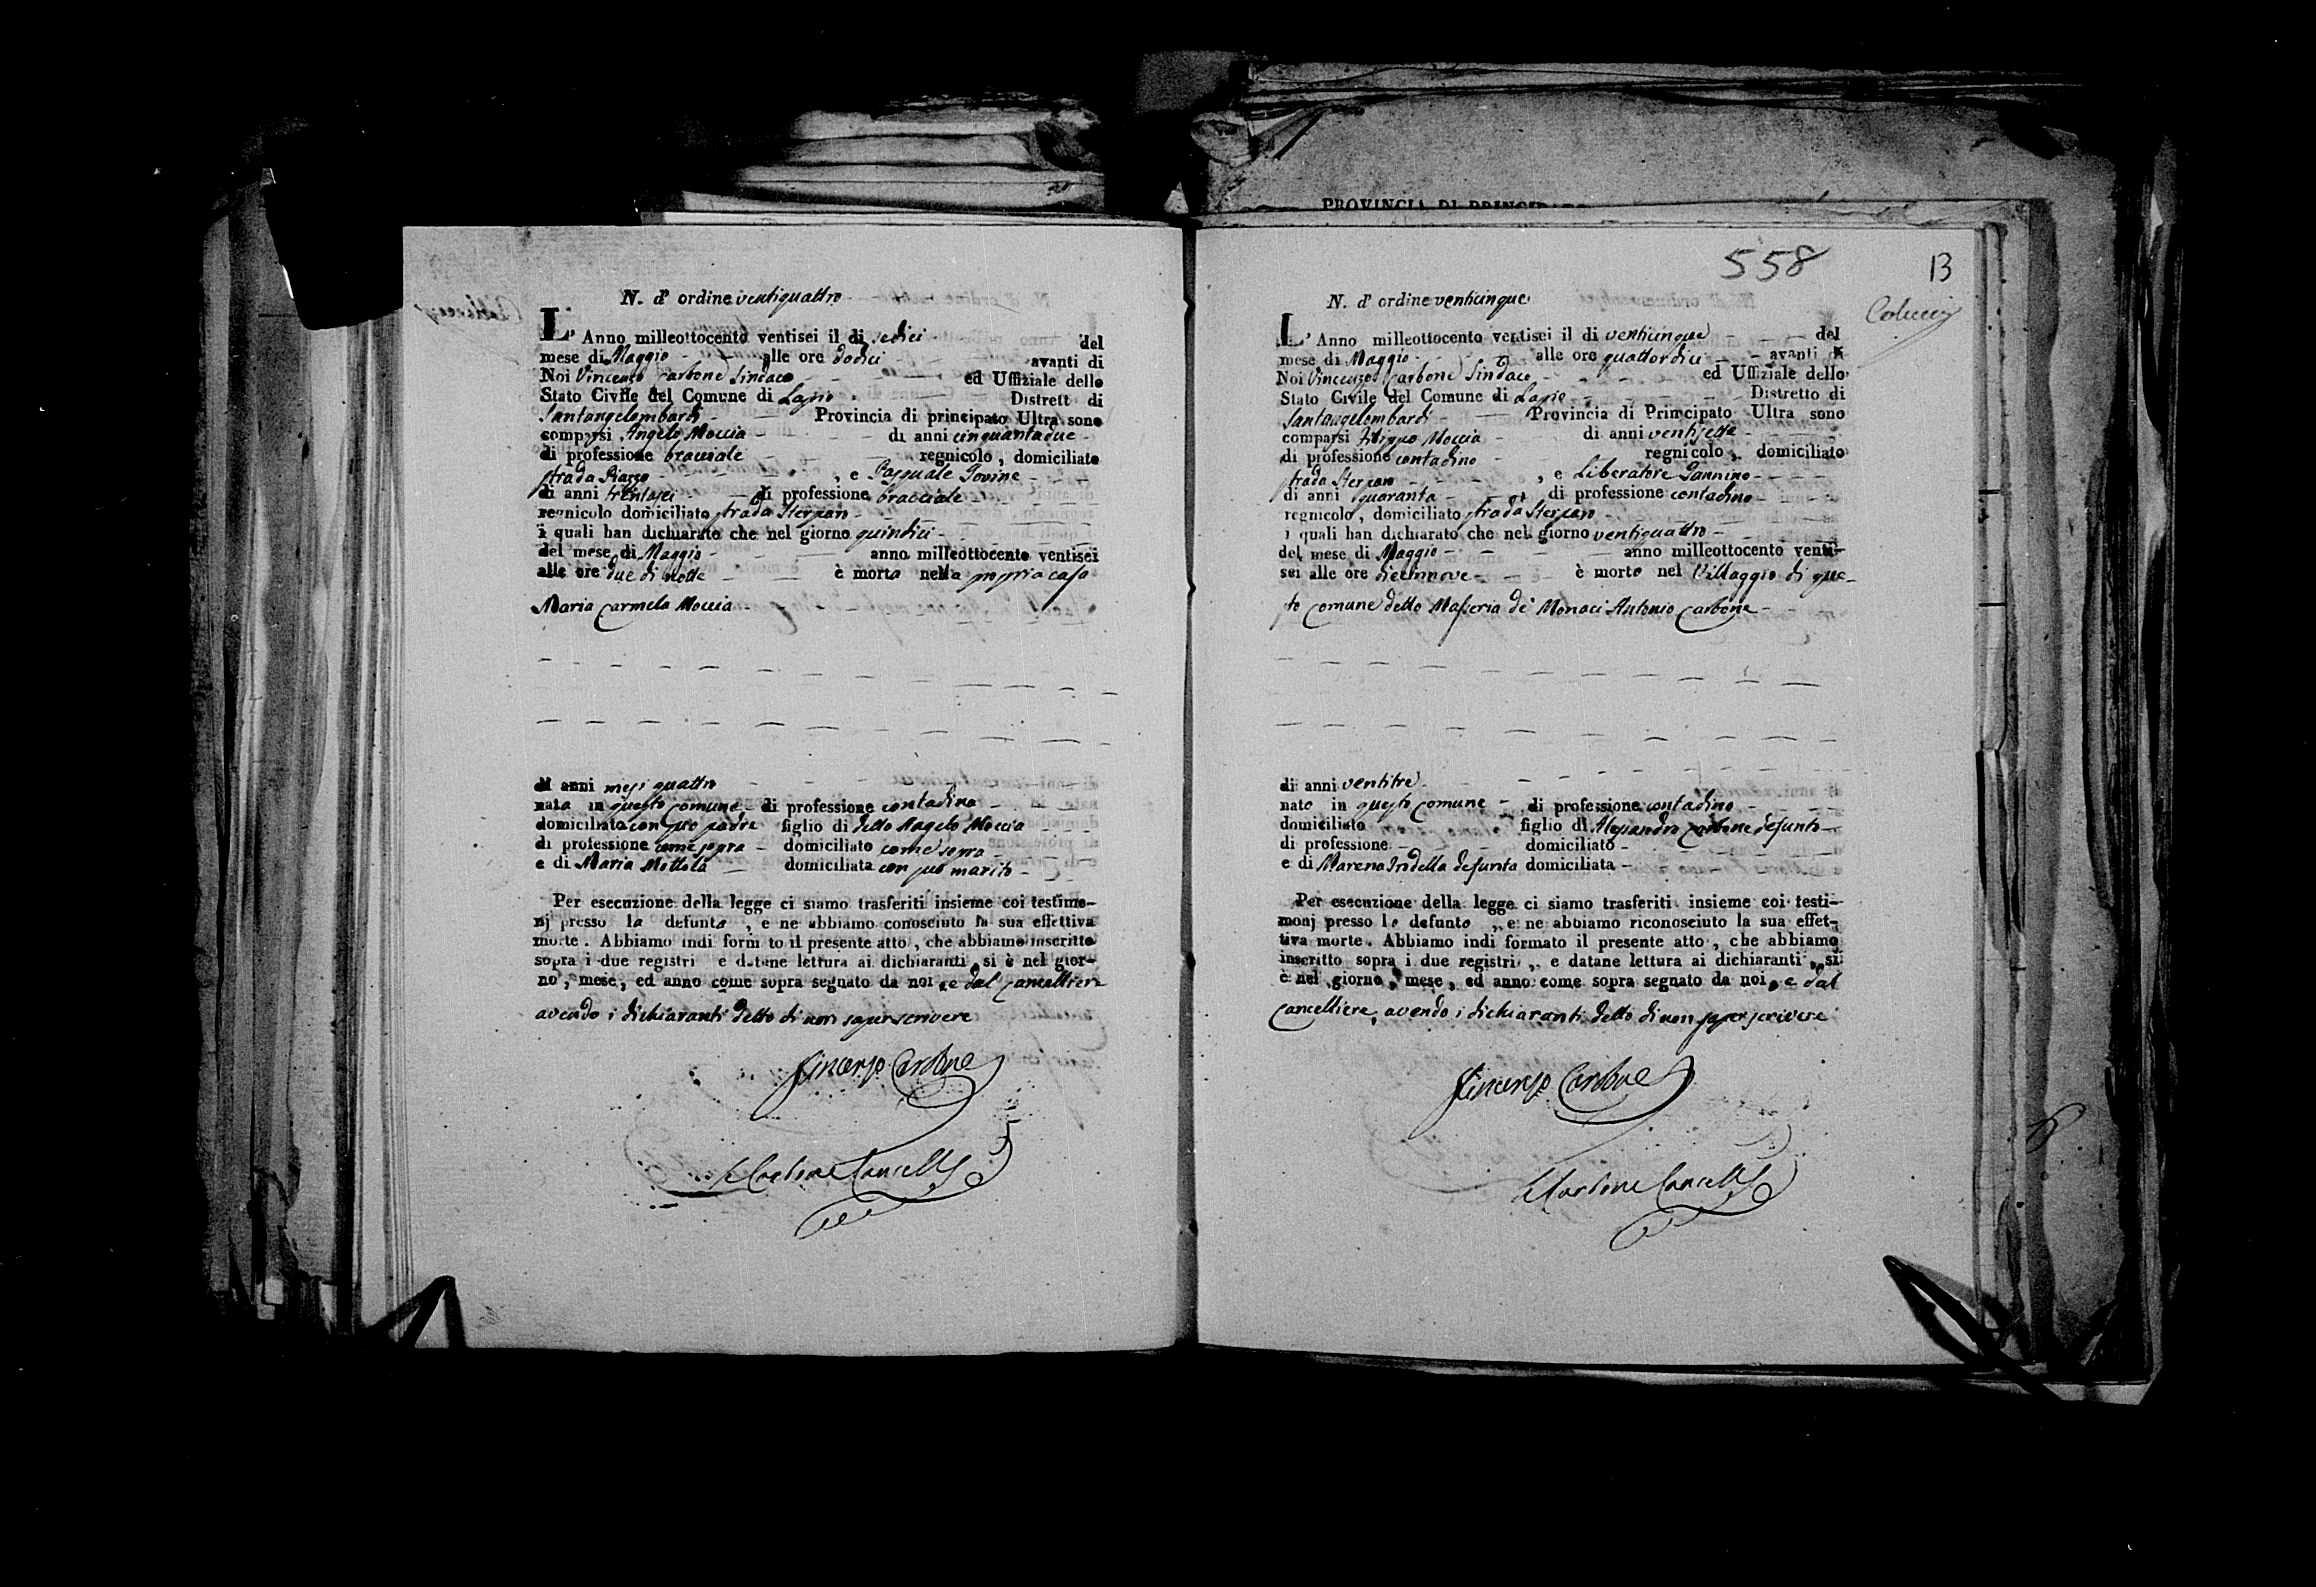 N. d' ordine ventiquattro
L' Anno milleottocento ventisei il di sedici del
mese di Maggio alle ore dodici avanti di
Noi Vincenzo Carbone Sindaco ed Uffiziale dello
Stato Civile del Comune di Lapio Distrett di
Santangelombardi Provincia di principato Ultra sono
comparsi Angelo Moccia di anni cinquantadue
di professione bracciale regnicolo, domiciliato
strada Piazzo, e Pasquale Iovine
di anni trentasei di professione bracciale
regnicolo domiciliato strada Sterparo
i quali han dichiarato che nel giorno quindici
del mese di Maggio anno milleottocento ventisei
alle ore due di notte è morta nella propria casa
Maria Carmela Moccia
di anni mesi quattro
nata in questo Comune di professione contadina
domiciliata con suo padre figlio di detto Angelo Moccia
di professione come sopra domiciliato come sopra
e di Maria Mottola domiciliata con suo marito
Per esecuzione della legge ci siamo trasferiti insieme coi testimo-
nj presso la defunta, e ne abbiamo conosciuto la sua effettiva
morte. Abbiamo indi form to il presente atto, che abbiamo inscritto
sopra i due registri e datane lettura ai dichiaranti, si è nel gior-
no, mese, ed anno come sopra segnato da noi, e dal Cancelliere
avendo i dichiaranti detto di non saper scrivere
Vincenzo Carbone
Carbone Cancell
PROVINCIA DI
558
13
Colucci
N. d' ordine venticinque
L' Anno milleottocento ventisei il di venticinque del
mese di Maggio alle ore quattordici avanti di
Noi Vincenzo Carbone Sindaco ed Uffiziale dello
Stato Civile del Comune di Lapio Distretto di
Santangelombardi Provincia di Principato Ultra sono
comparsi Filippo Moccia di anni ventisette
di professione contadino regnicolo, domiciliato
strada Sterparo, e Liberatore Iannino
di anni quaranta di professione contadino
regnicolo, domiciliato strada Sterparo
i quali han dichiarato che nel giorno ventiquattro
del mese di Maggio anno milleottocento venti-
sei alle ore diecinnove è morto nel Villaggio di que-
sto Comune detto Masseria de' Monaci Antonio Carbone
di anni ventitre
nato in questo Comune di professione contadino
domiciliato figlio di Alessandro Carbone defunto
di professione domiciliato
e di Marena Iridella defunta domiciliata
Per esecuzione della legge ci siamo trasferiti insieme coi testi-
monj presso lo defunto, e ne abbiamo riconosciuto la sua effet-
tiva morte. Abbiamo indi formato il presente atto, che abbiamo
inscritto sopra i due registri, e datane lettura ai dichiaranti, si
è nel giorno, mese, ed anno come sopra segnato da noi, e dal
Cancelliere, avendo i dichiaranti detto di non saper scrivere
Vincenzo Carbone
Carbone Cancell